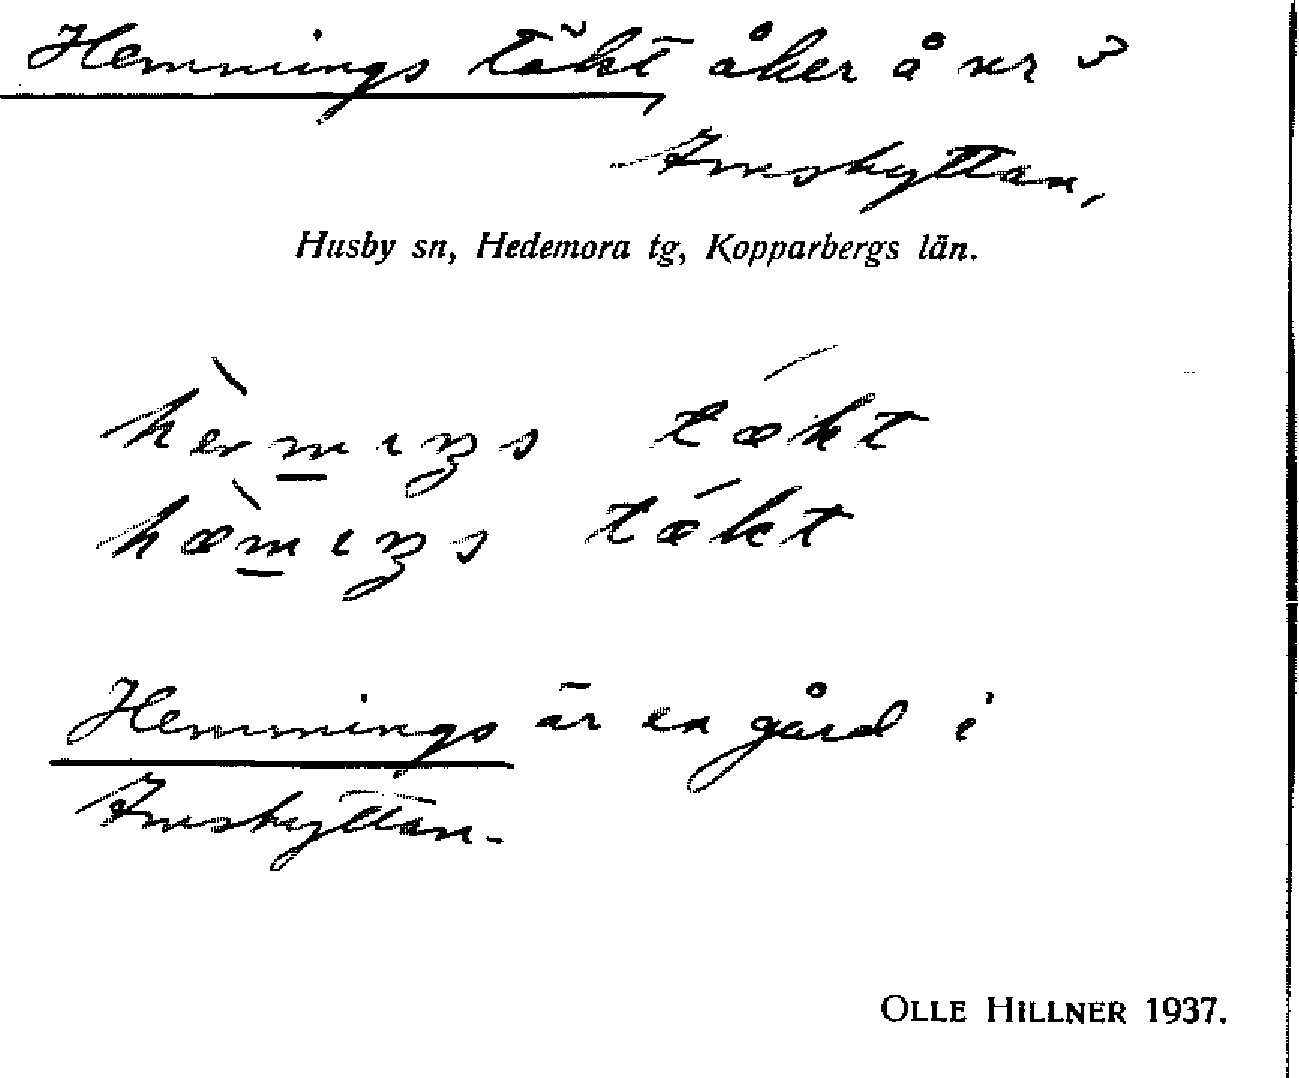 Hemnings täkt, åker å nr 3
Imshyttan,
Husby sn, Hedemora tg, Kopparbergs län.
tækt
tækt
Hemnings är en gård i
Imshyttan.
OLLE HILLNER 1937.